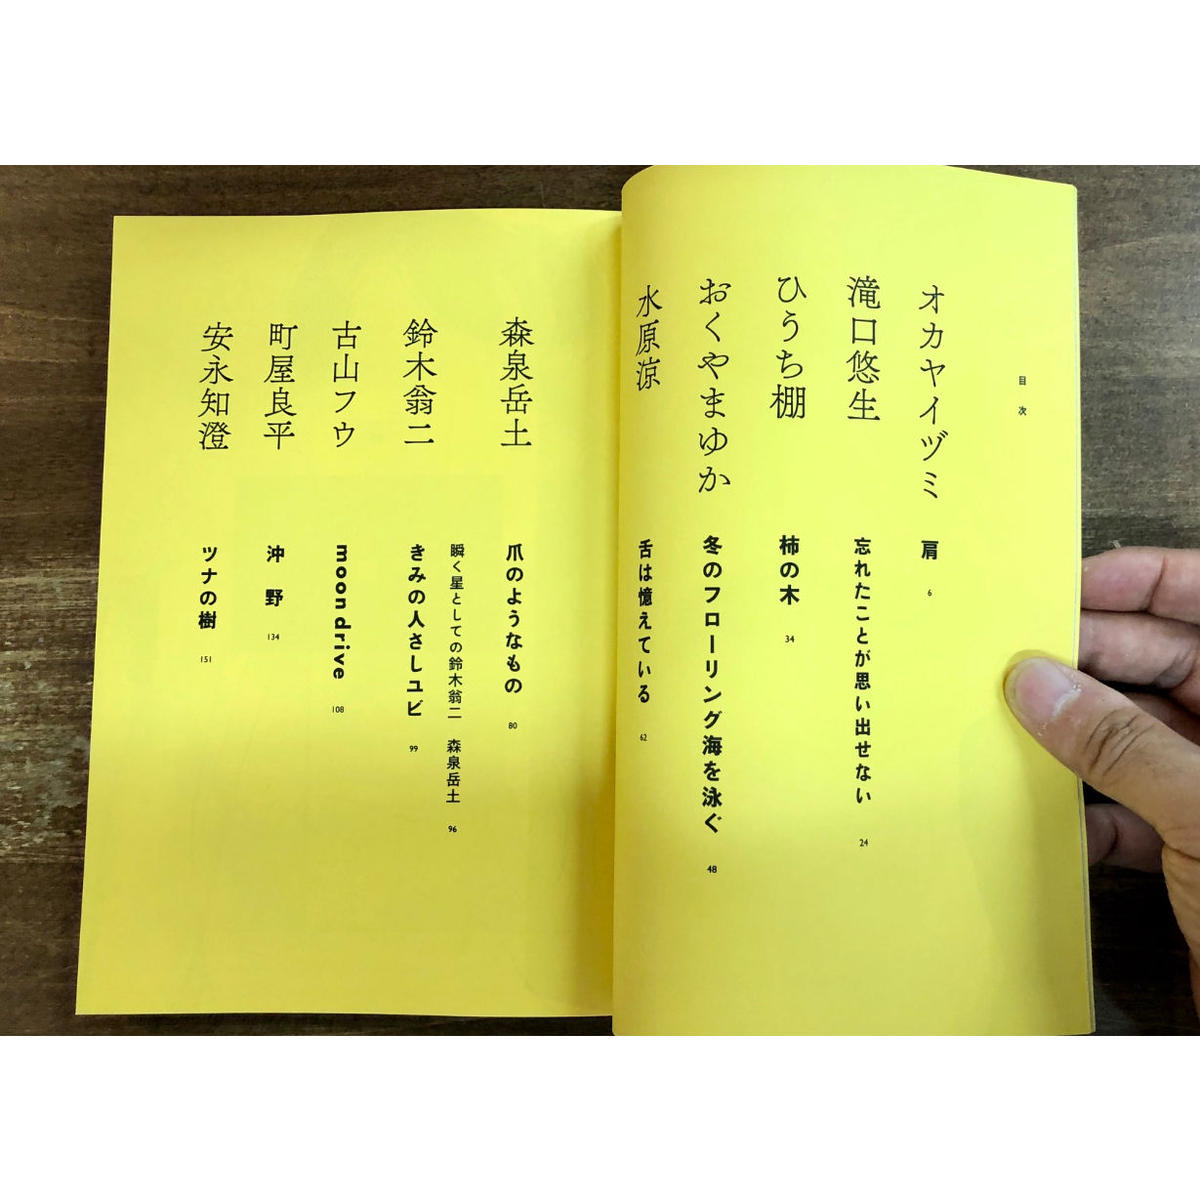 目次
オカヤイヅミ 肩 6
滝口悠生 忘れたことが思い出せない 24
ひうち棚 柿の木 34
おくやまゆか 冬のフローリング海を泳ぐ 48
水原涼 舌は憶えている 62
森泉岳土 爪のようなもの 80
瞬く星としての鈴木翁二 森泉岳土 96
鈴木翁二 きみの人さしユビ 99
古山フウ moondrive 108
町屋良平 沖野 134
安永知澄 ツナの樹 151